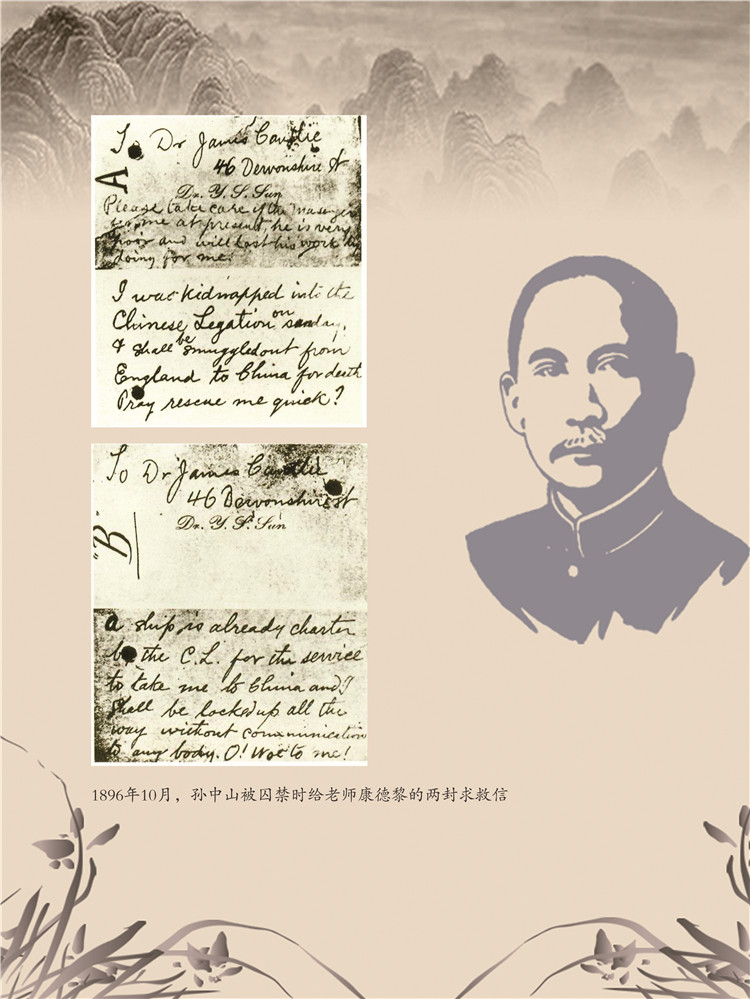 To Dr James Cantlie
46 Devonshire St
A
Dr. Y. S. Sun
Please take care of the masenger
for me at present, he is very
poor and will lost his work by
doing for me.
I was kidnapped into the
Chinese Legation on sunday,
& shall be smuggled out from
England to China for death
Pray rescue me quick?
To Dr James Cantlie
46 Devonshire St
Dr. Y. S. Sun
"B"
a ship is already charter
by the C.L. for the service
to take me to China and I
shall be locked up all the
way without communication
to any body. O! Woe to me!
1896年10月，孙中山被囚禁时给老师康德黎的两封求救信